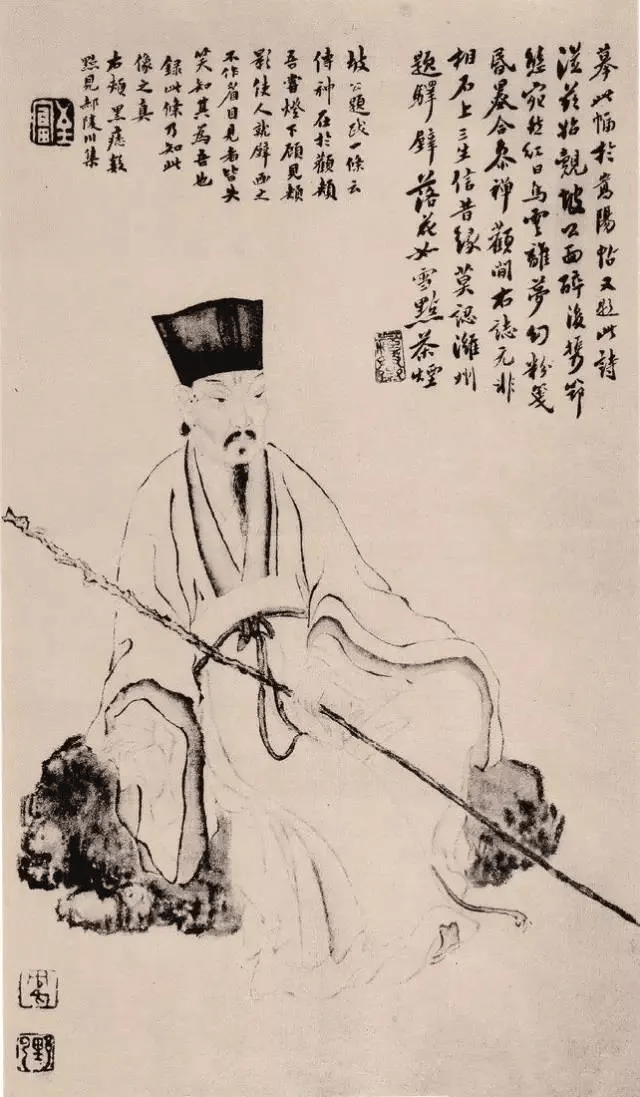 摹此幅於嵩陽帖又題此詩
從茲始覿坡公面醉後攜筇
態宛然紅日烏雲離夢幻粉箋
昏墨合參禪顴間右誌元非
相石上三生信昔緣莫認濰州
題驛壁落花如雪點茶煙
坡公題跋一條云
傳神在於顴頰
吾嘗燈下顧見頰
影使人就壁畫之
不作眉目見者皆失
笑知其為吾也
録此條乃知此
像之真
右頰黑痣數
點見郝陵川集